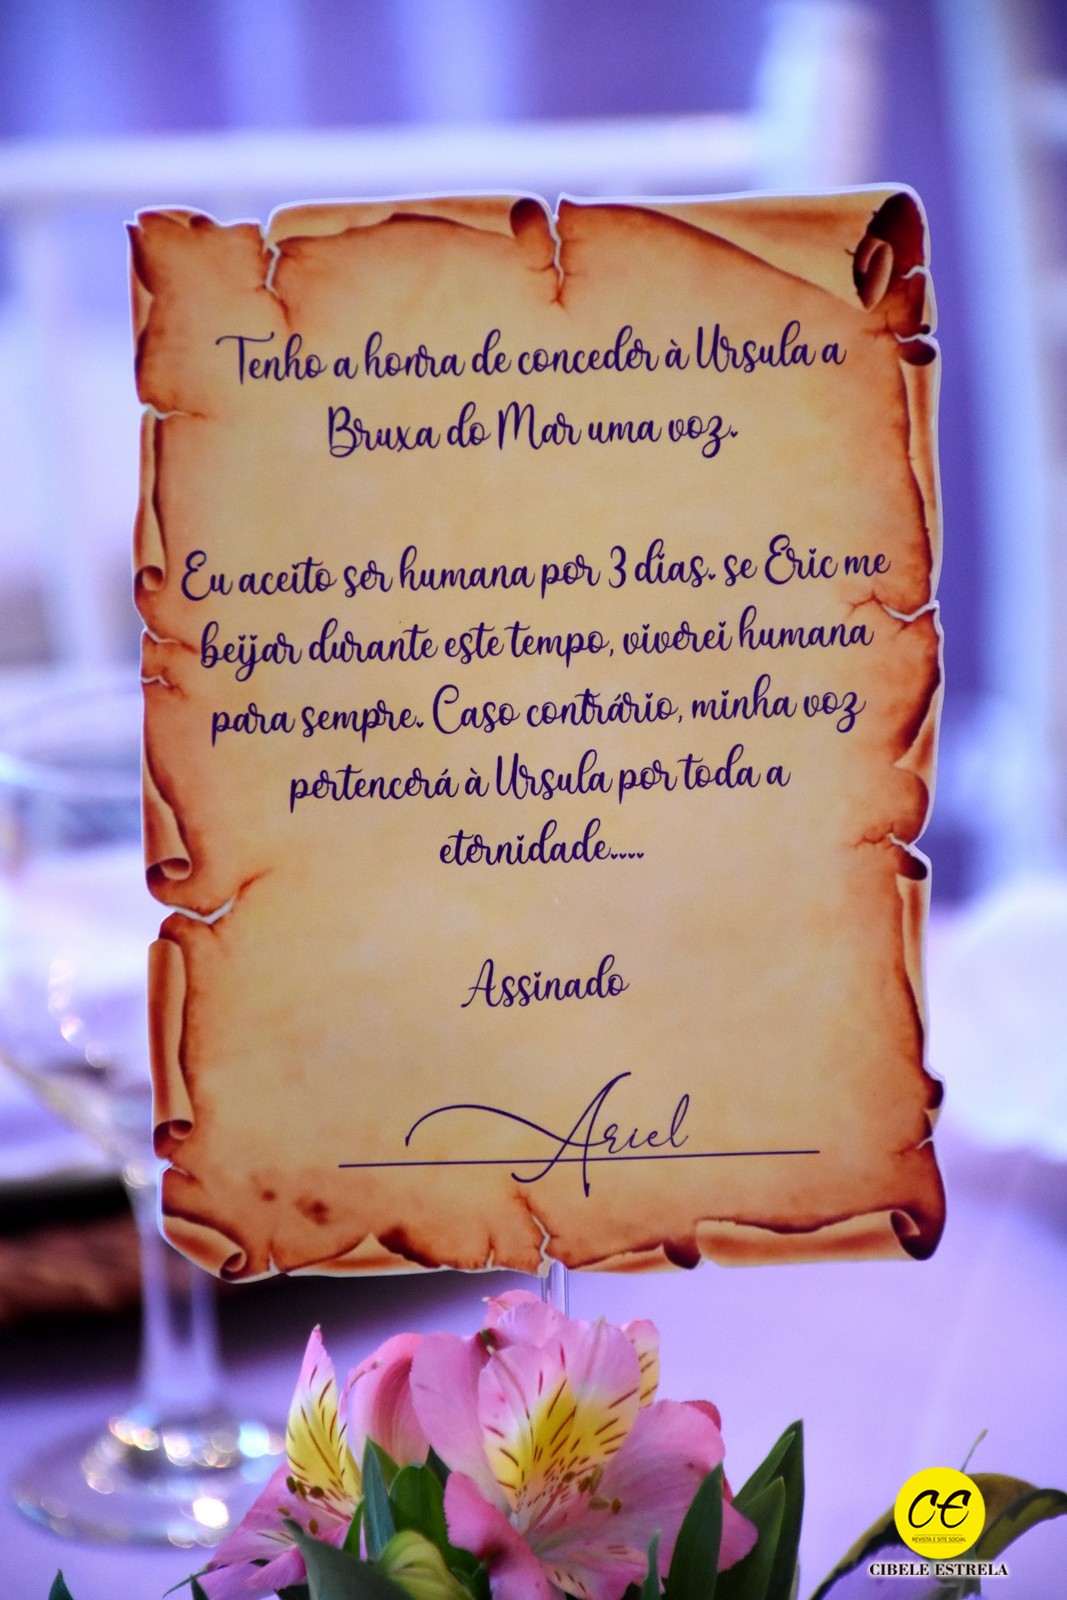 Tenho a honra de conceder à Ursula a
Bruxa do Mar uma voz.
Eu aceito ser humana por 3 dias. se Eric me
beijar durante este tempo, viverei humana
para sempre. Caso contrário, minha voz
pertencerá à Ursula por toda a
eternidade....
Assinado
Ariel
CE
REVISTA E SITE SOCIAL
CIBELE ESTRELA